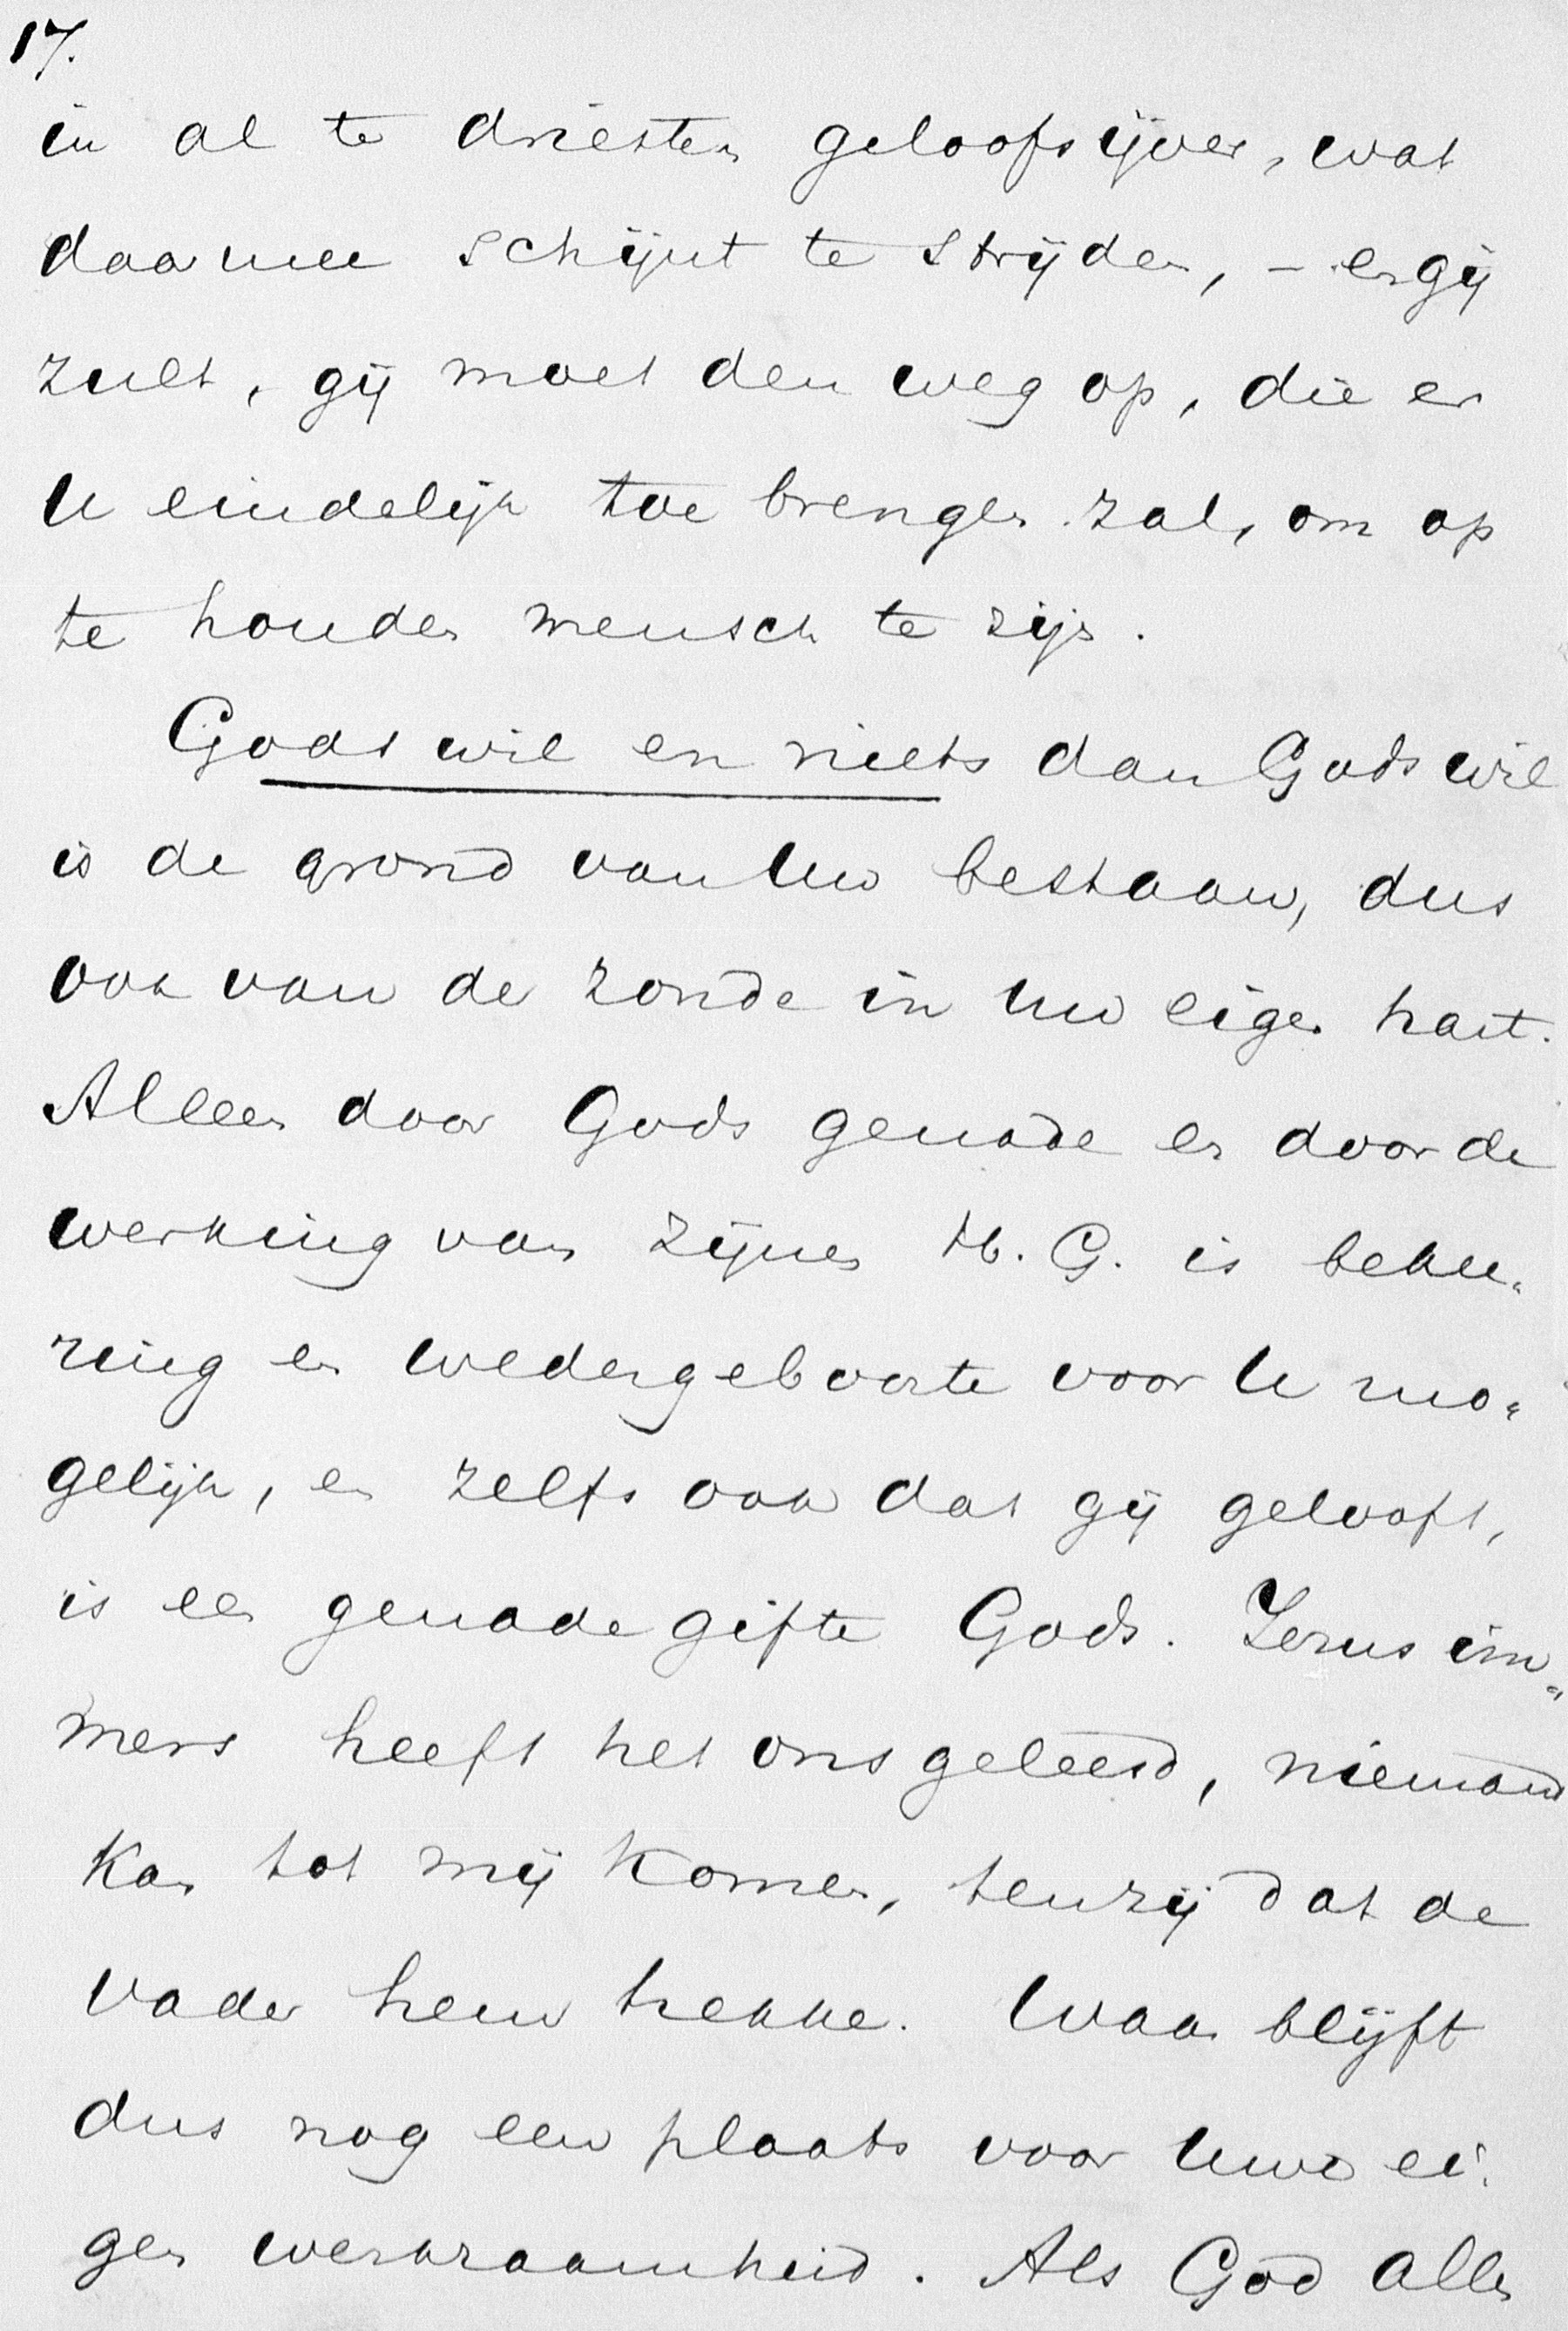 17.
in al te driesten geloofsijver, wat
daarmee schijnt te strijden, – en gij
zult, gij moet den weg op, die er
U eindelijk toe brengen zal, om op
te houden mensch te zijn.
Gods wil en niets dan Gods wil
is de grond van Uw bestaan, dus
ook van de zonde in Uw eigen hart.
Alleen door Gods genade en door de
werking van zijnen H. G. is bekee„
ring en wedergeboorte voor U mo„
gelijk, en zelfs ook dat gij gelooft,
is een genadegifte Gods. Jezus im„
mers heeft het ons geleerd, niemand
kan tot mij komen, tenzij dat de
vader hem trekke. Waar blijft
dus nog een plaats voor Uwe ei„
gen werkzaamheid. Als God alles